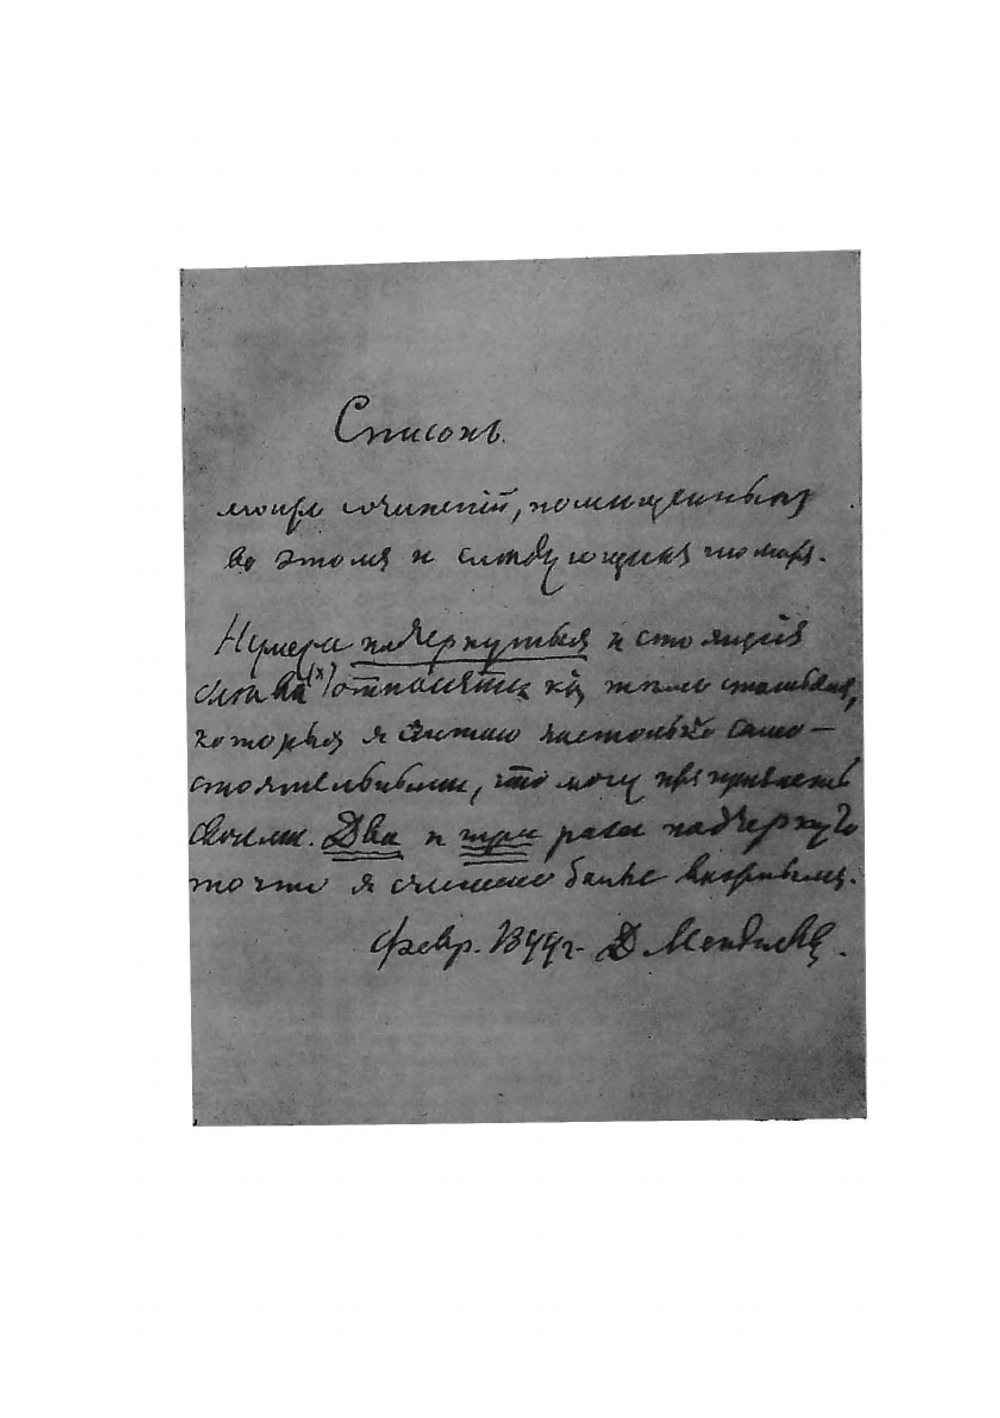 Списокъ.
моихъ сочиненій, помещенныхъ
въ этомъ и следующихъ томахъ.
Нумера подчеркнутые и стоящія
слѣва (*) относятся къ темъ статьямъ,
которыя я считаю настолько само-
стоятельными, что могу признавать
своими. Два и три раза подчеркнуто
то что я считаю более важнымъ.
Февр. 1899 г. Д Менделѣевъ.